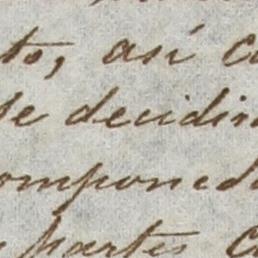 to, así c
se decidi
omponed
partes c